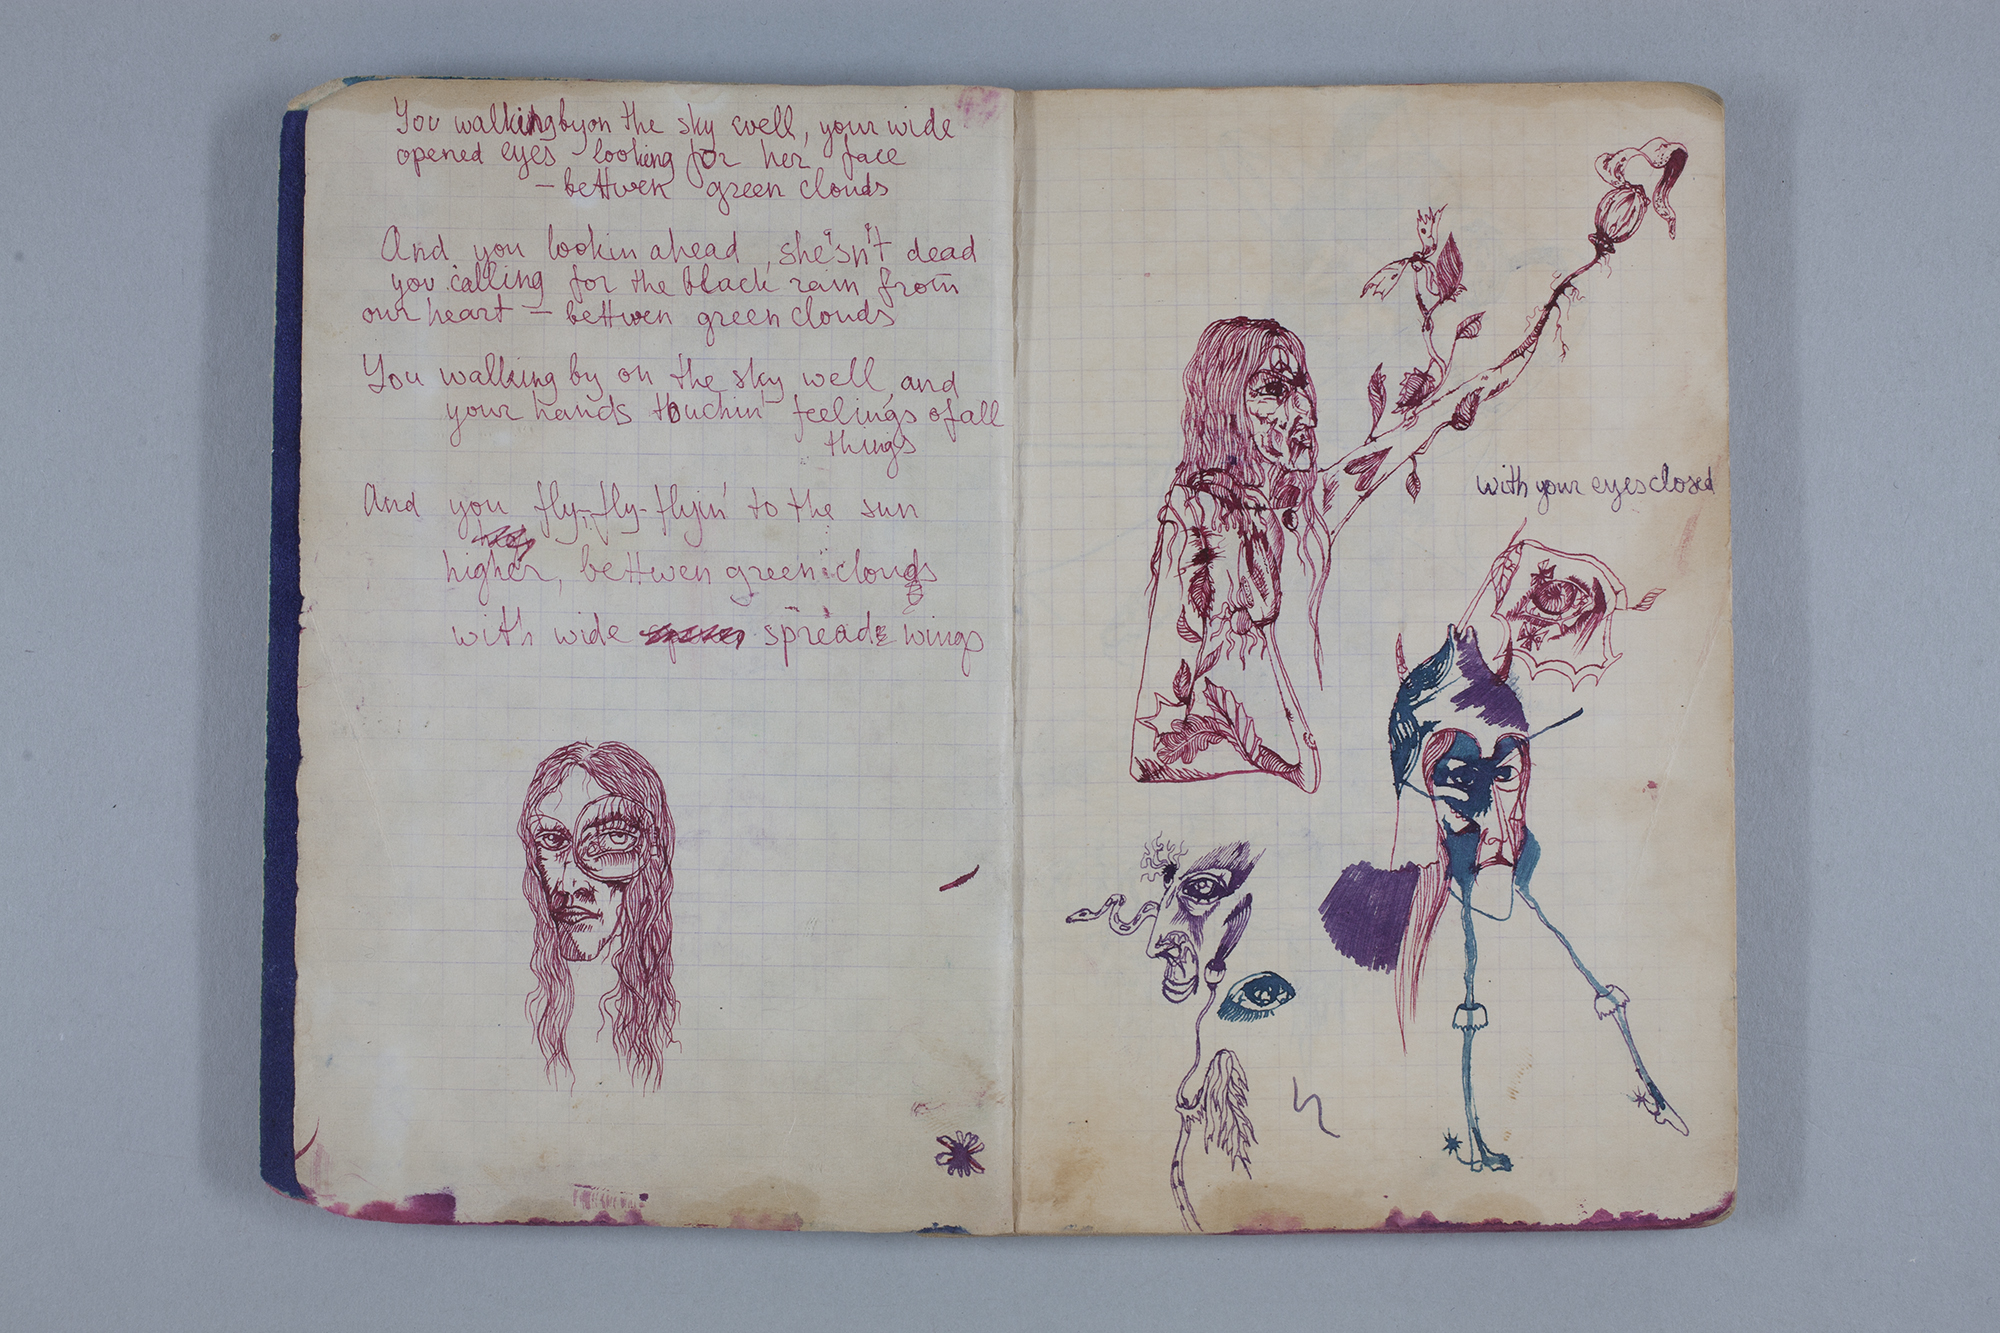 You walking by on the sky well, your wide
opened eyes looking for her face
- bettwen green clouds
And you lookin ahead, she'sn't dead
you calling for the black rain from
our heart - bettwen green clouds
You walking by on the sky well and
your hands touchin' feelings of all
things
And you fly-fly-flyin' to the sun
higher, bettwen green clouds
with wide spreads wings
with your eyes closed